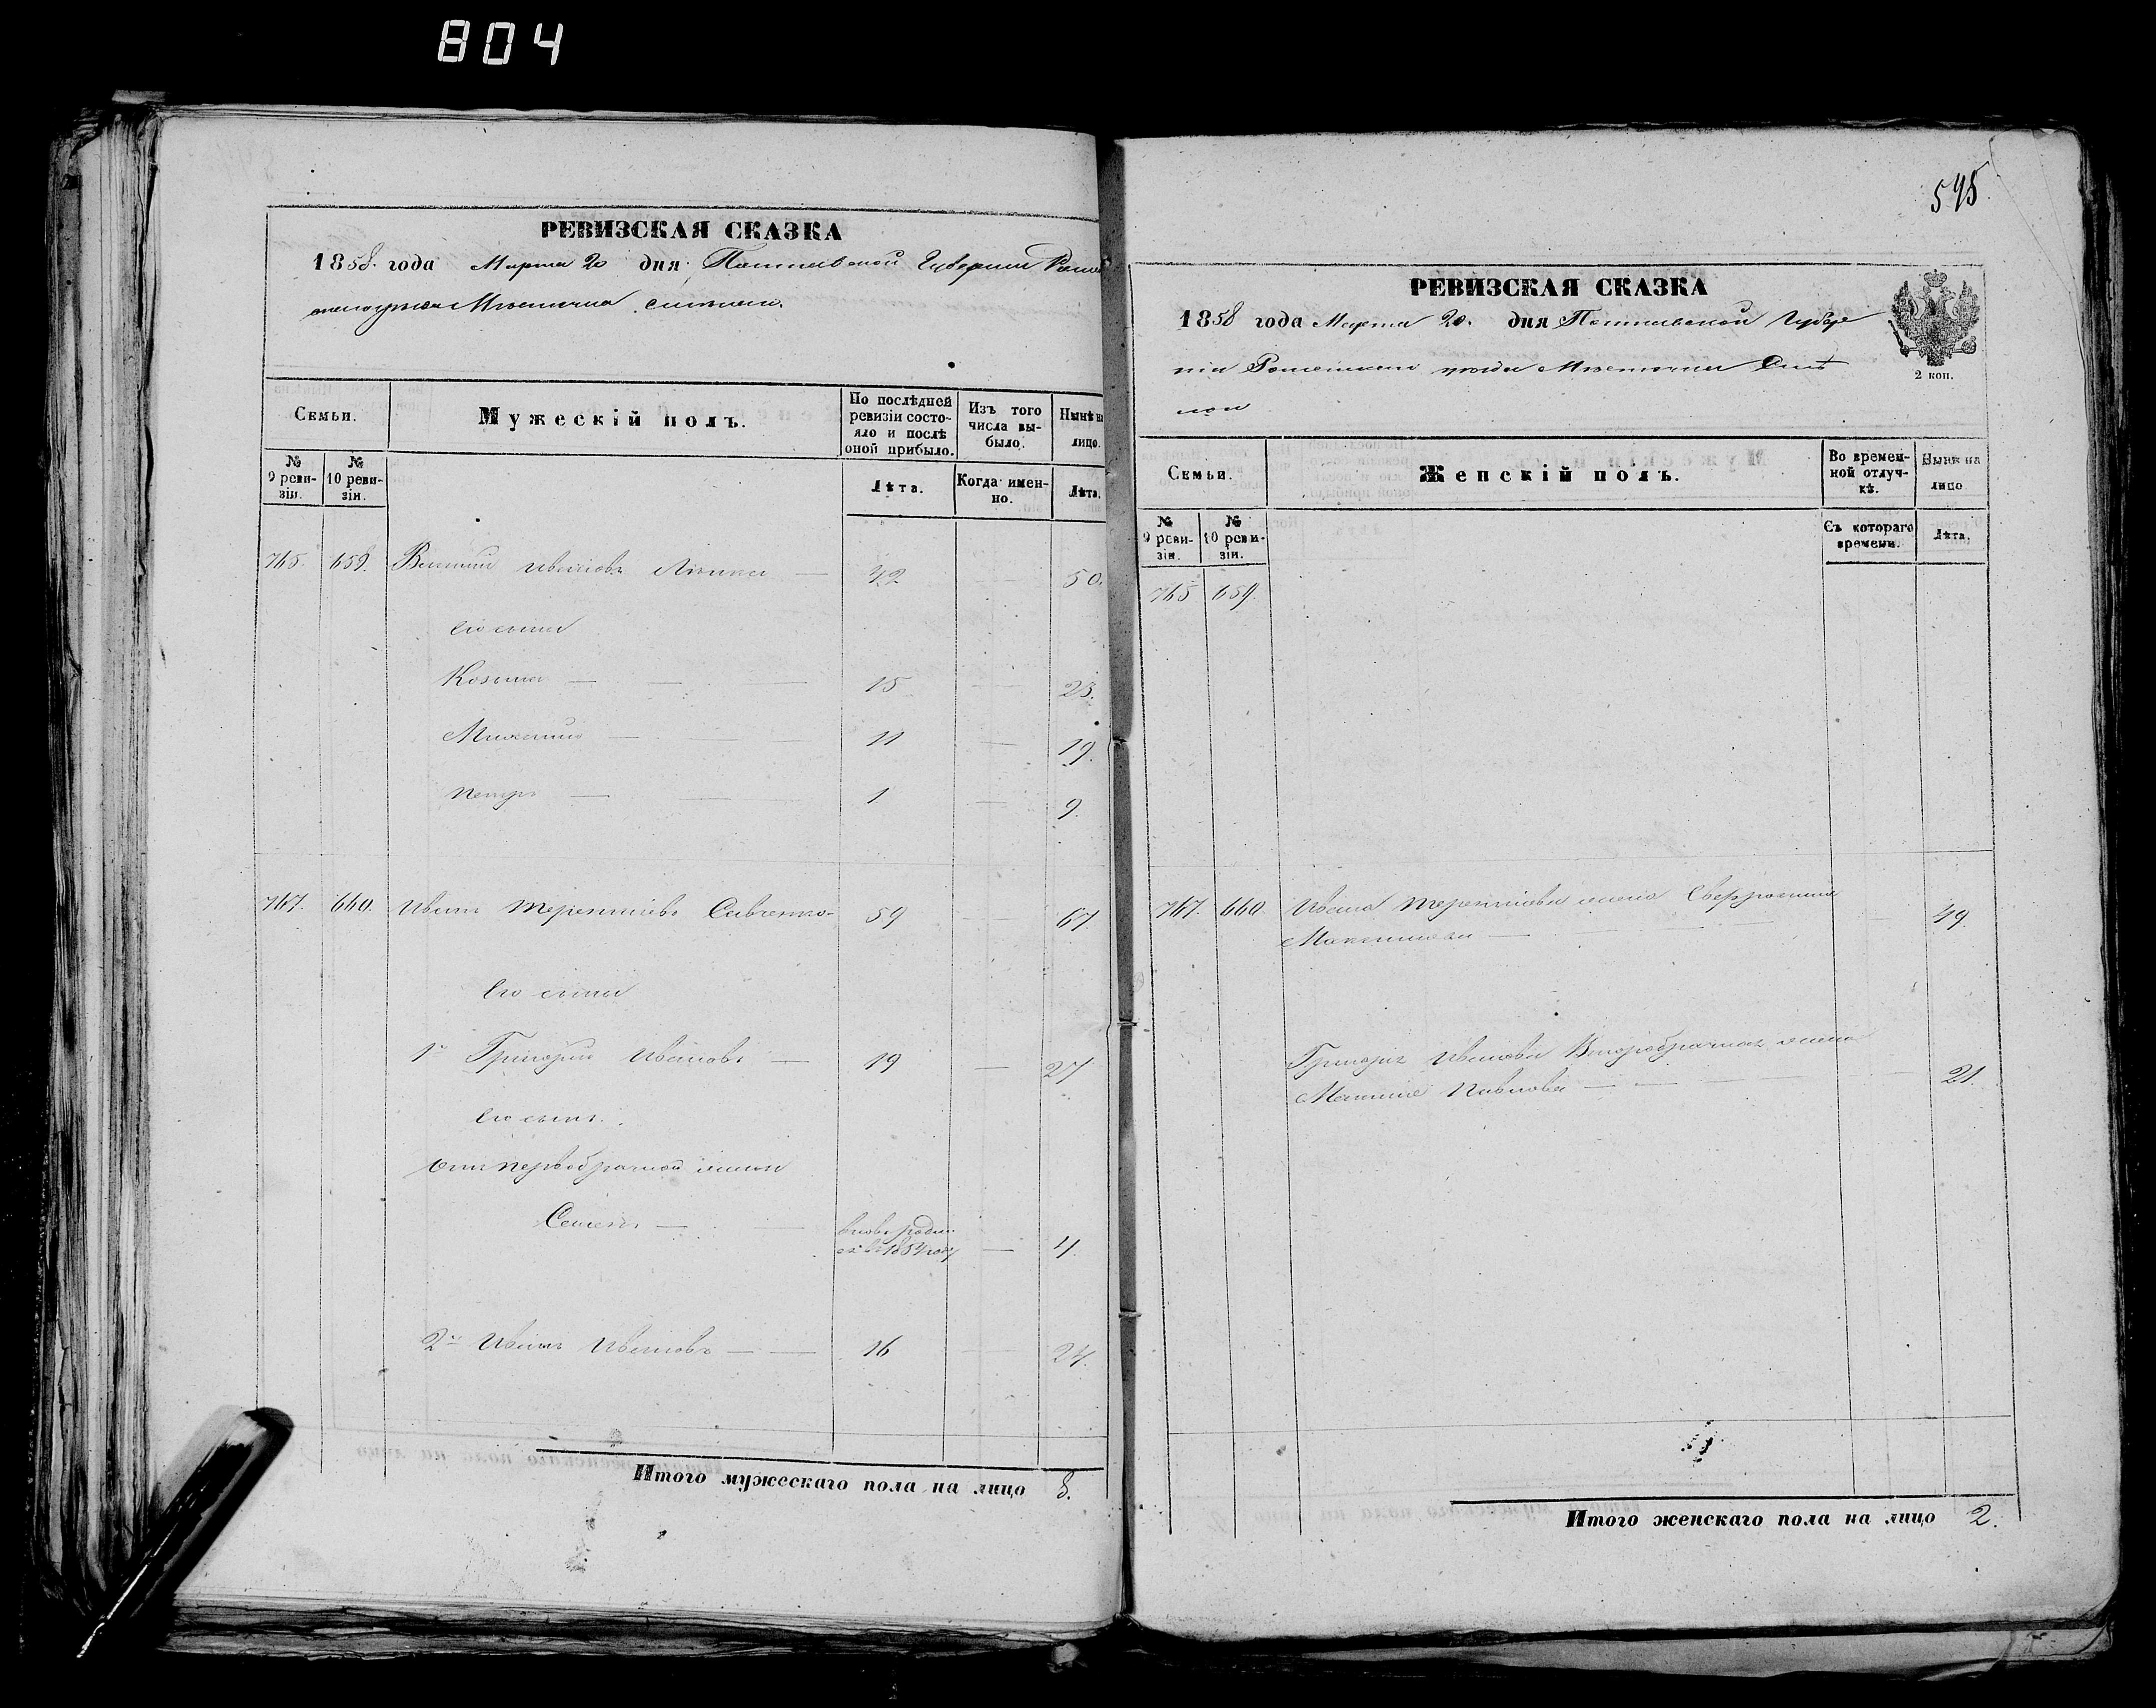 804
РЕВИЗСКАЯ СКАЗКА
1858. года Марта 20 дня Полтавской Губернии Роме
Местечка Смелого.
Семьи.
Мужескій полъ.
По послѣдней ревизіи состояло и послѣ оной прибыло.
Изъ того числа выбыло.
Нынѣ на лицо.
№ 9 ревизіи.
№ 10 ревизіи.
Лѣта.
Когда именно.
Лѣта.
765. 659. Ивановъ 42 50.
Его сыны
Козьма 15 23.
Михаилъ 11 19.
Петръ 1 9.
767. 660. Иванъ Терентіевъ Савченко 59 67.
Его сыны
1й Григорій Ивановъ 19 27
Его сынъ.
отъ первобрачной жены
Семенъ вновь родил
ся въ 1854 году 4.
2й Иванъ Ивановъ 16 24.
Итого мужескаго пола на лицо 8.
545.
РЕВИЗСКАЯ СКАЗКА
1858 года Марта 20. дня Полтавской Губер
ніи Роменскаго уезда Местечка Смѣ
лой
2 коп.
Семьи.
Женскій полъ.
Во временной отлучкѣ.
Нынѣ на лицо
№ 9 ревизіи.
№ 10 ревизіи.
Съ котораго времени.
Лѣта.
765 659.
767. 660. Ивана Терентіева жена Евфросинія
Максимова 49.
Григорія Иванова Второбрачная жена
Павлова 21.
Итого женскаго пола на лицо 2.